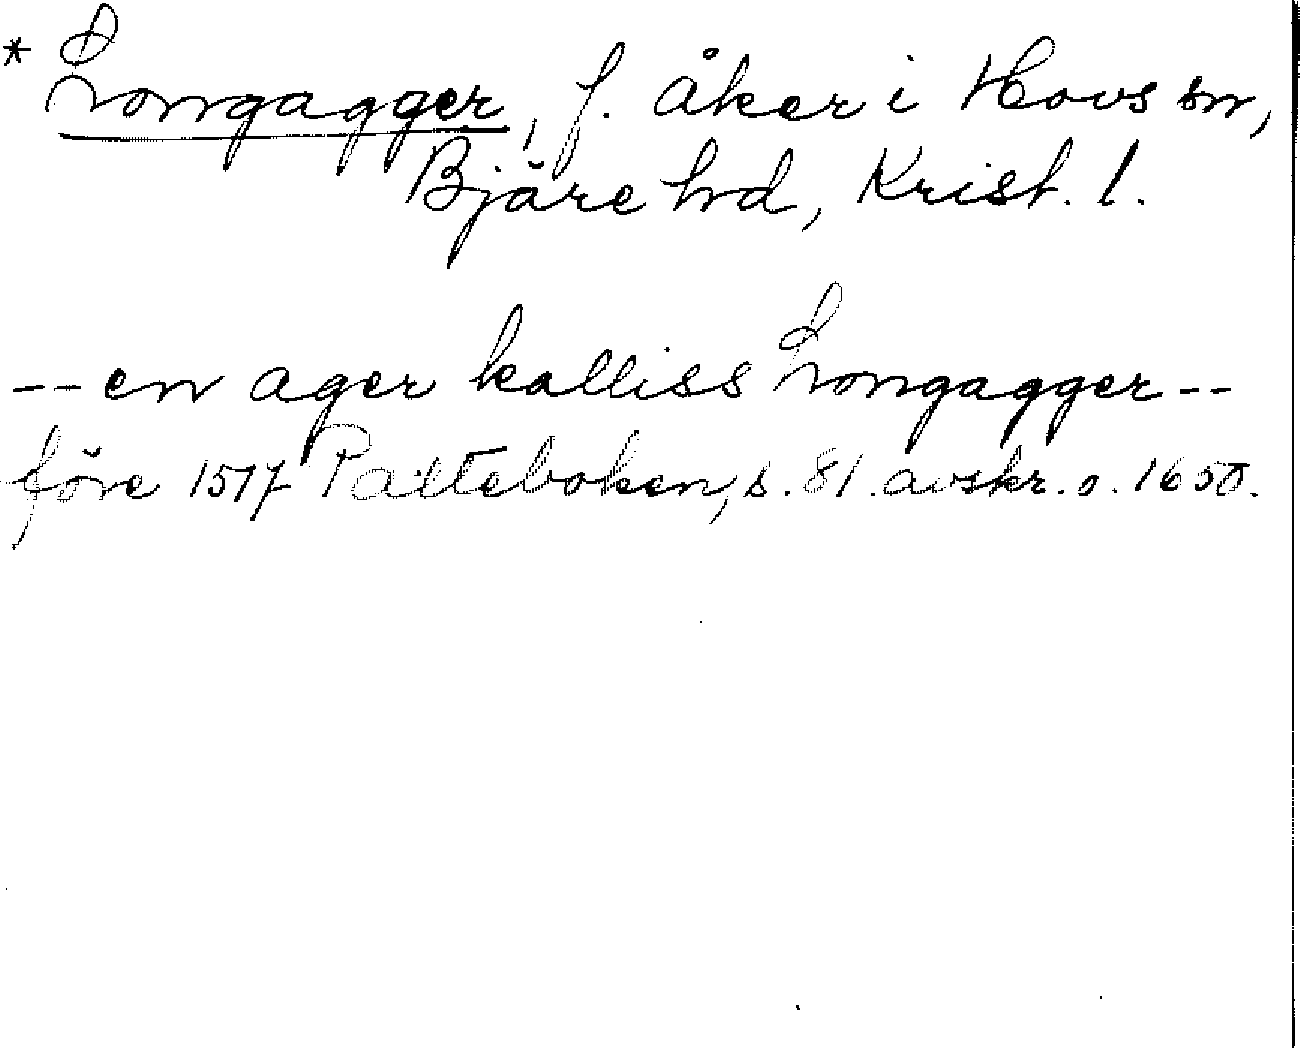 * Longagger, f. åker i Hovs sn,
Bjäre hrd, Krist. l.
-- en ager kalliss Longagger --
före 1517 Palteboken, s. 81. avskr. o. 1650.